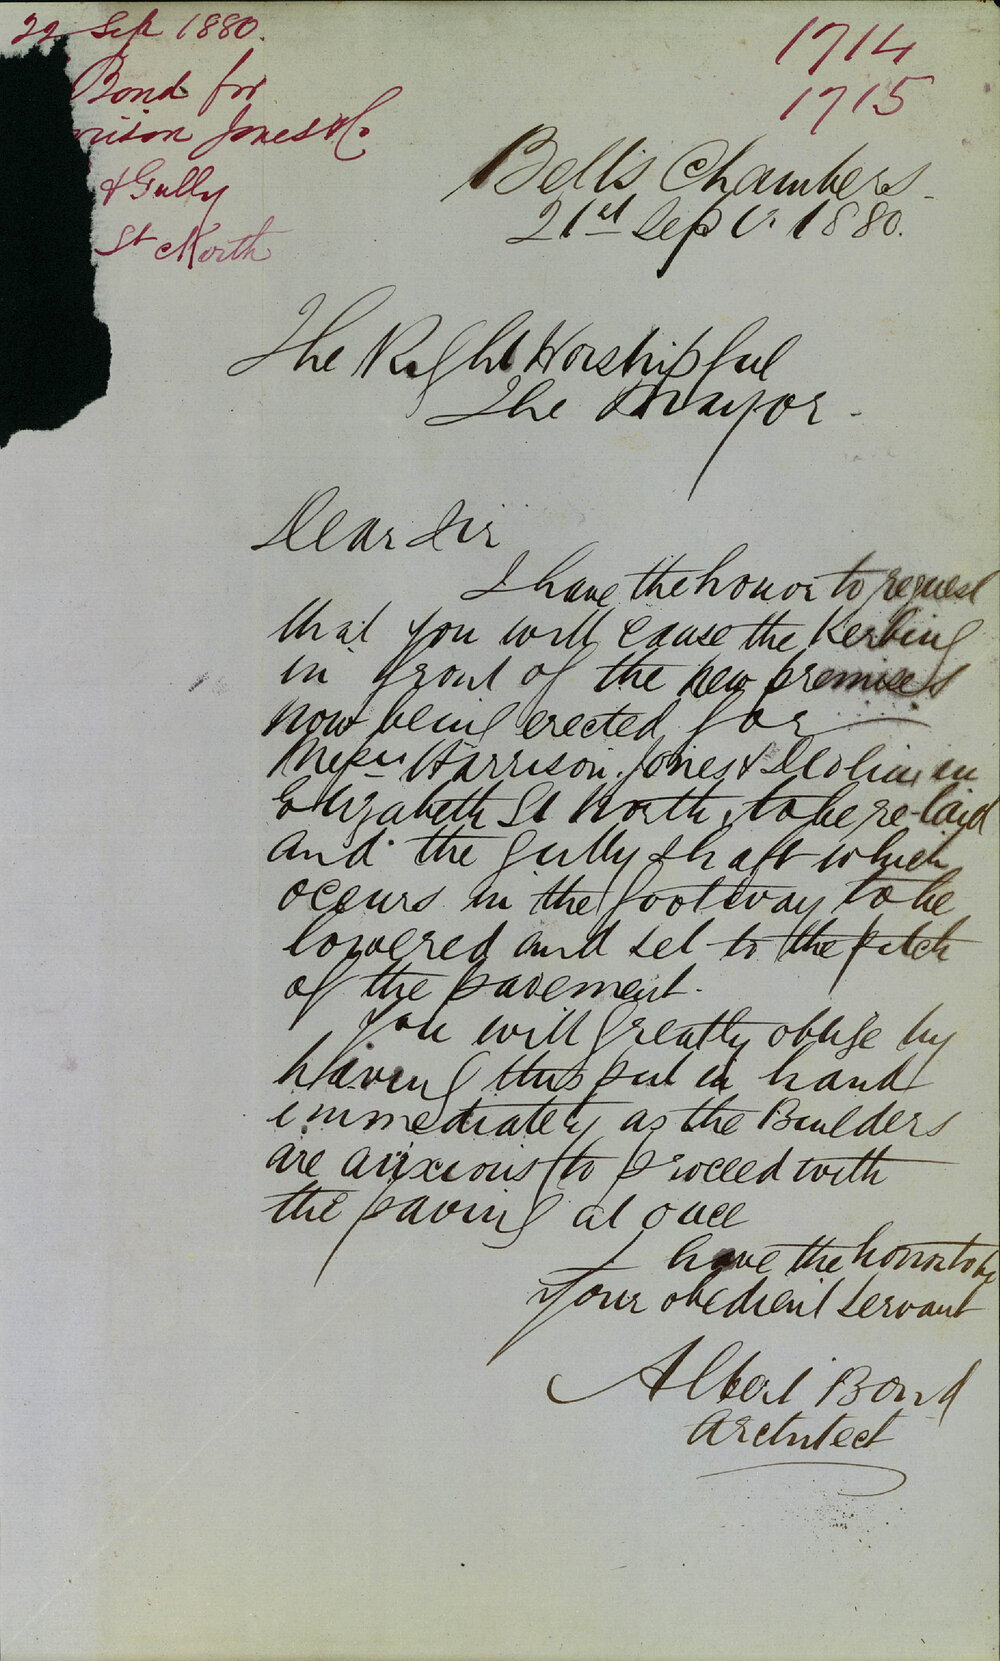 22 Sept 1880.
Bond for
rrison Jones & Co
& Gully
St North
1714
1715
Bell's Chambers
21st Sept. 1880.
The Right Worshipful
The Mayor.
Dear Sir
I have the honor to request
that you will cause the Kerbing
in front of the new premises
now being erected for
Messrs Harrison. Jones & Devlin in
Elizabeth St North, to be re-laid
and the gully shaft which
occurs in the footway to be
lowered and set to the pitch
of the pavement.
You will greatly oblige by
having this put in hand
immediately as the Builders
are anxious to proceed with
the paving at once
I have the honor to be
Your obedient servant
Albert Bond
Architect